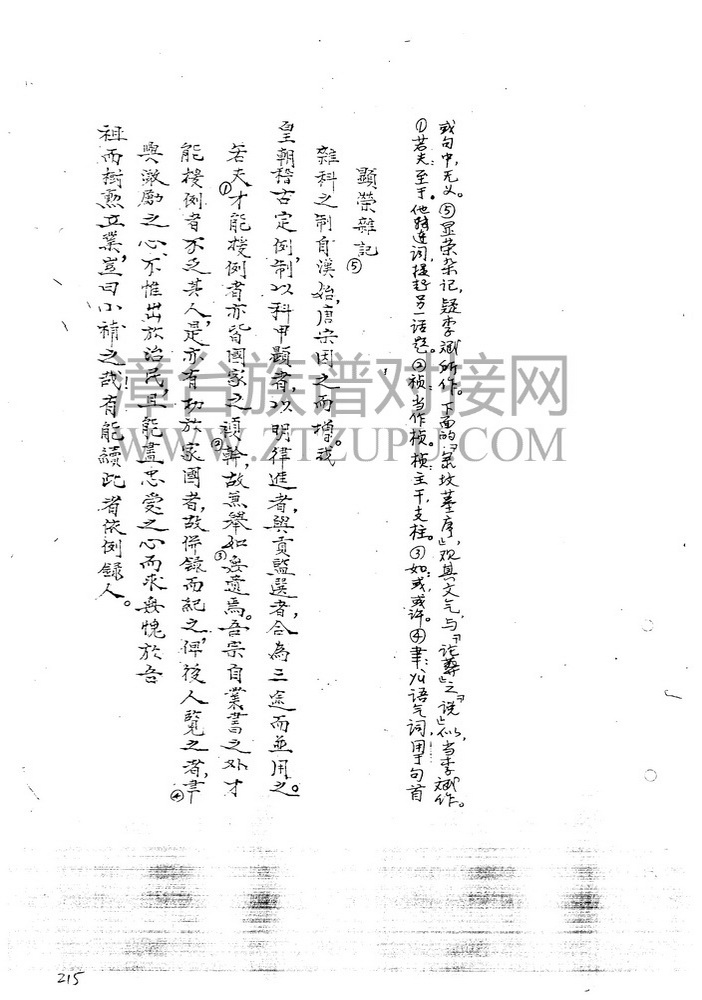 或句中，无义。⑤显荣杂记，疑李斌所作。下面的“宗坟墓序”，观其文气，与“论葬”之“说”似，当李斌作。
①若夫：至于。他转连词，提起另一话题。②桢：当作桢。桢：主干，支柱。③如：或，或许。④聿：发语气词，用于句首
顯榮雜記⑤
雜科之制自漢始，唐宗因之而增。我
皇朝稽古定例，制以科甲顯者，以明律進者，與貢監選者，合為三途而並用之。
若夫①才能授例者亦皆國家之禎②幹，故兼舉如③無遺焉。吾宗自業書之外才
能授例者不乏其人，是亦有功於家國者，故併録而紀之，俾後人覧之者，聿④
興激勵之心，不惟出於治民，且能盡忠愛之心而求無愧於吾
祖而樹勲立業，豈曰小補之哉！有能續此者依例録人。
漳台族谱对接网
WWW.ZTZUPU.COM
215